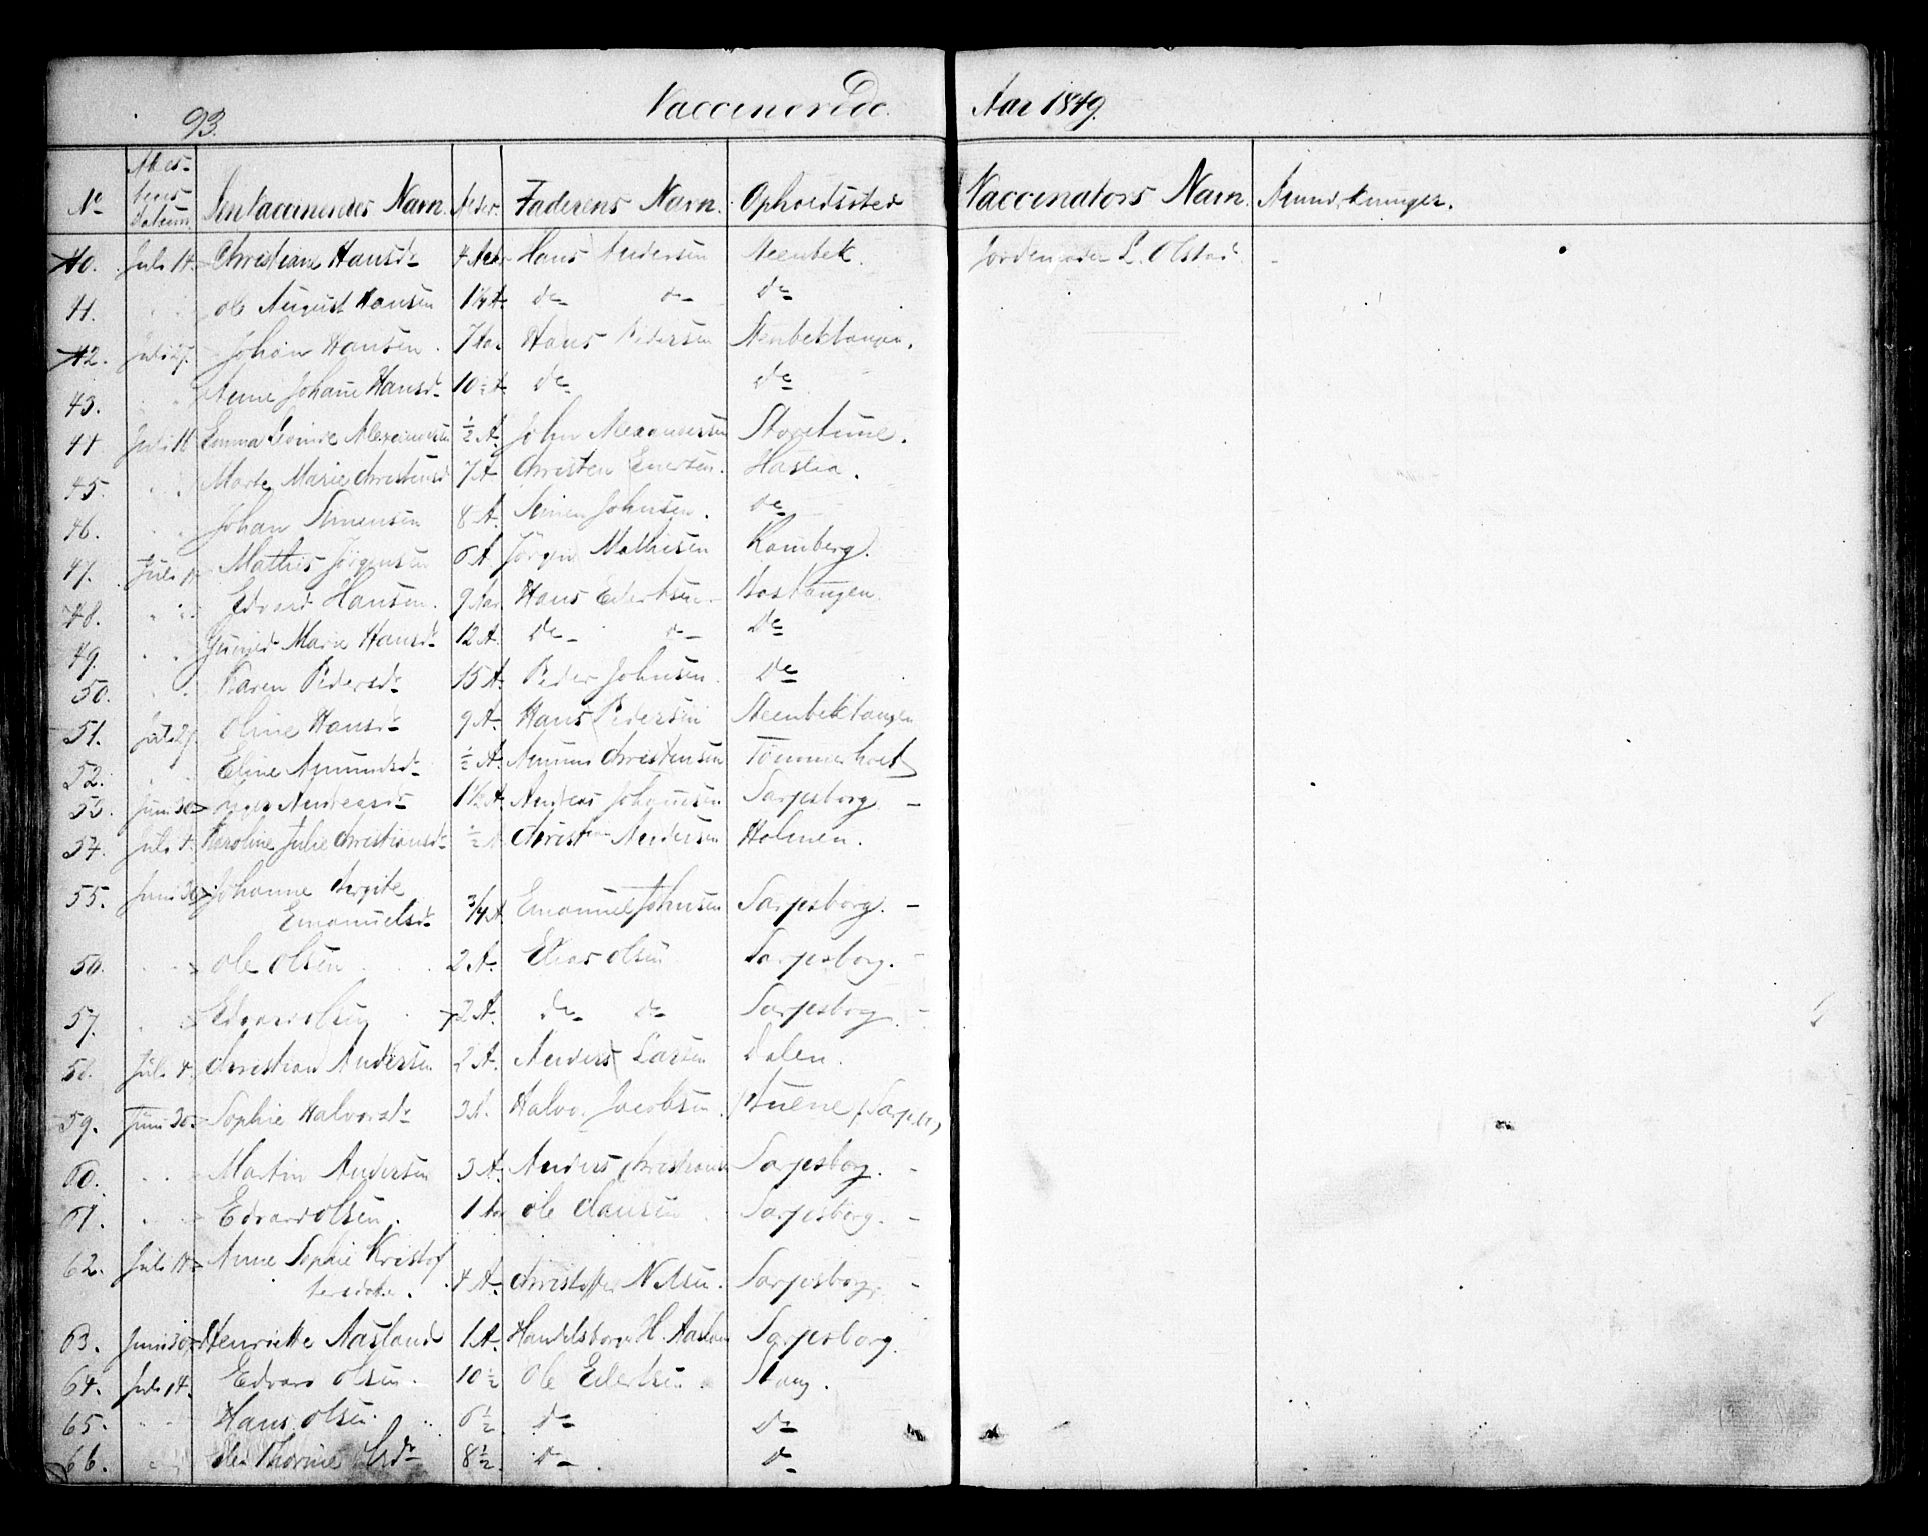 93.
Vaccinerede. Aar 1849.
No Attestens Datum Navn. Alder. Faderens Navn. Opholdssted Vaccinators Navn. Anmærkninger.
40. Juli 14 Christiane Hansdr 4 Aar Hans Andersen Steenbek. L. Olstad.
41. " " Ole August Hansen 1 1/4 A. do do do
42. Juli 27. Johan Hansen. 7 Aar. Hans Pedersen Steenbektangen.
43. " " Anne Johane Hansdr 10 1/2 A. do do
44 Juli 14 Emma 1/2 A. John Alexandersen Storetune.
45. " " Marte Marie Christensd 7 A Christen Enersen. Haslia.
46. " " Johan Simensen 8 A. Simen Johnsen. do
47. Juli 14 Mathis Jörgensen 6 A Jörgen Mathisen Kamberg.
48. " " Edvard Hansen. 9 Aar Hans Eilertsen Bostangen.
49. " " Marie Hansdr 12 A. do do do
50. " " Karen Pedersdr 15 A. Peder Johnsen. do
51. Juli 27. Oline Hansdr 9 A. Hans Pedersen Steenbektangen
52. " " Eline Amundsdr 1/2 A. Amund Christensen Tömmerholt
53. Juni 30 Andreasdr 1 1/2 A. Andreas Johannesen Sarpsborg. -
54. Juli 4. Karoline Julie Christiansdr 1/2 A Christian Andersen Holmen.
55. Juni 30 Johanne Birgite
Emanuelsdr 3/4 A Emanuel Johnsen Sarpsborg. -
56. " " Ole Olsen 2 A. Olsen Sarpsborg. -
57. " " Edvard Olsen 2 A. do do Sarpsborg. -
58. Juli 4. Christian Andersen 2 A. Anders Larsen Dalen.
59. Juni 30 Sophie Halvorsdr 3 A. Halvor Jacobsen.
60. " " Martin Andersen 3 A. Anders Christiansen Sarpsborg. -
61. " " Edvard Olsen. 1 Aar Ole Clausen Sarpsborg. -
62. Juli 14 Anne Sophie Kristof
fersdatter. 4 A. Christoffer Nilsen. Sarpsborg. -
63. Juni 30 Henriette Aasland 1 A. Handelsborger H. Aasland Sarpsborg.
64. Juli 14. Edvard Olsen. 10 1/2 Ole Eilertsen. Stang.
65. " " Hans Olsen. 6 1/2 do do
66. " Thorine Olsdr 8 1/2. do do